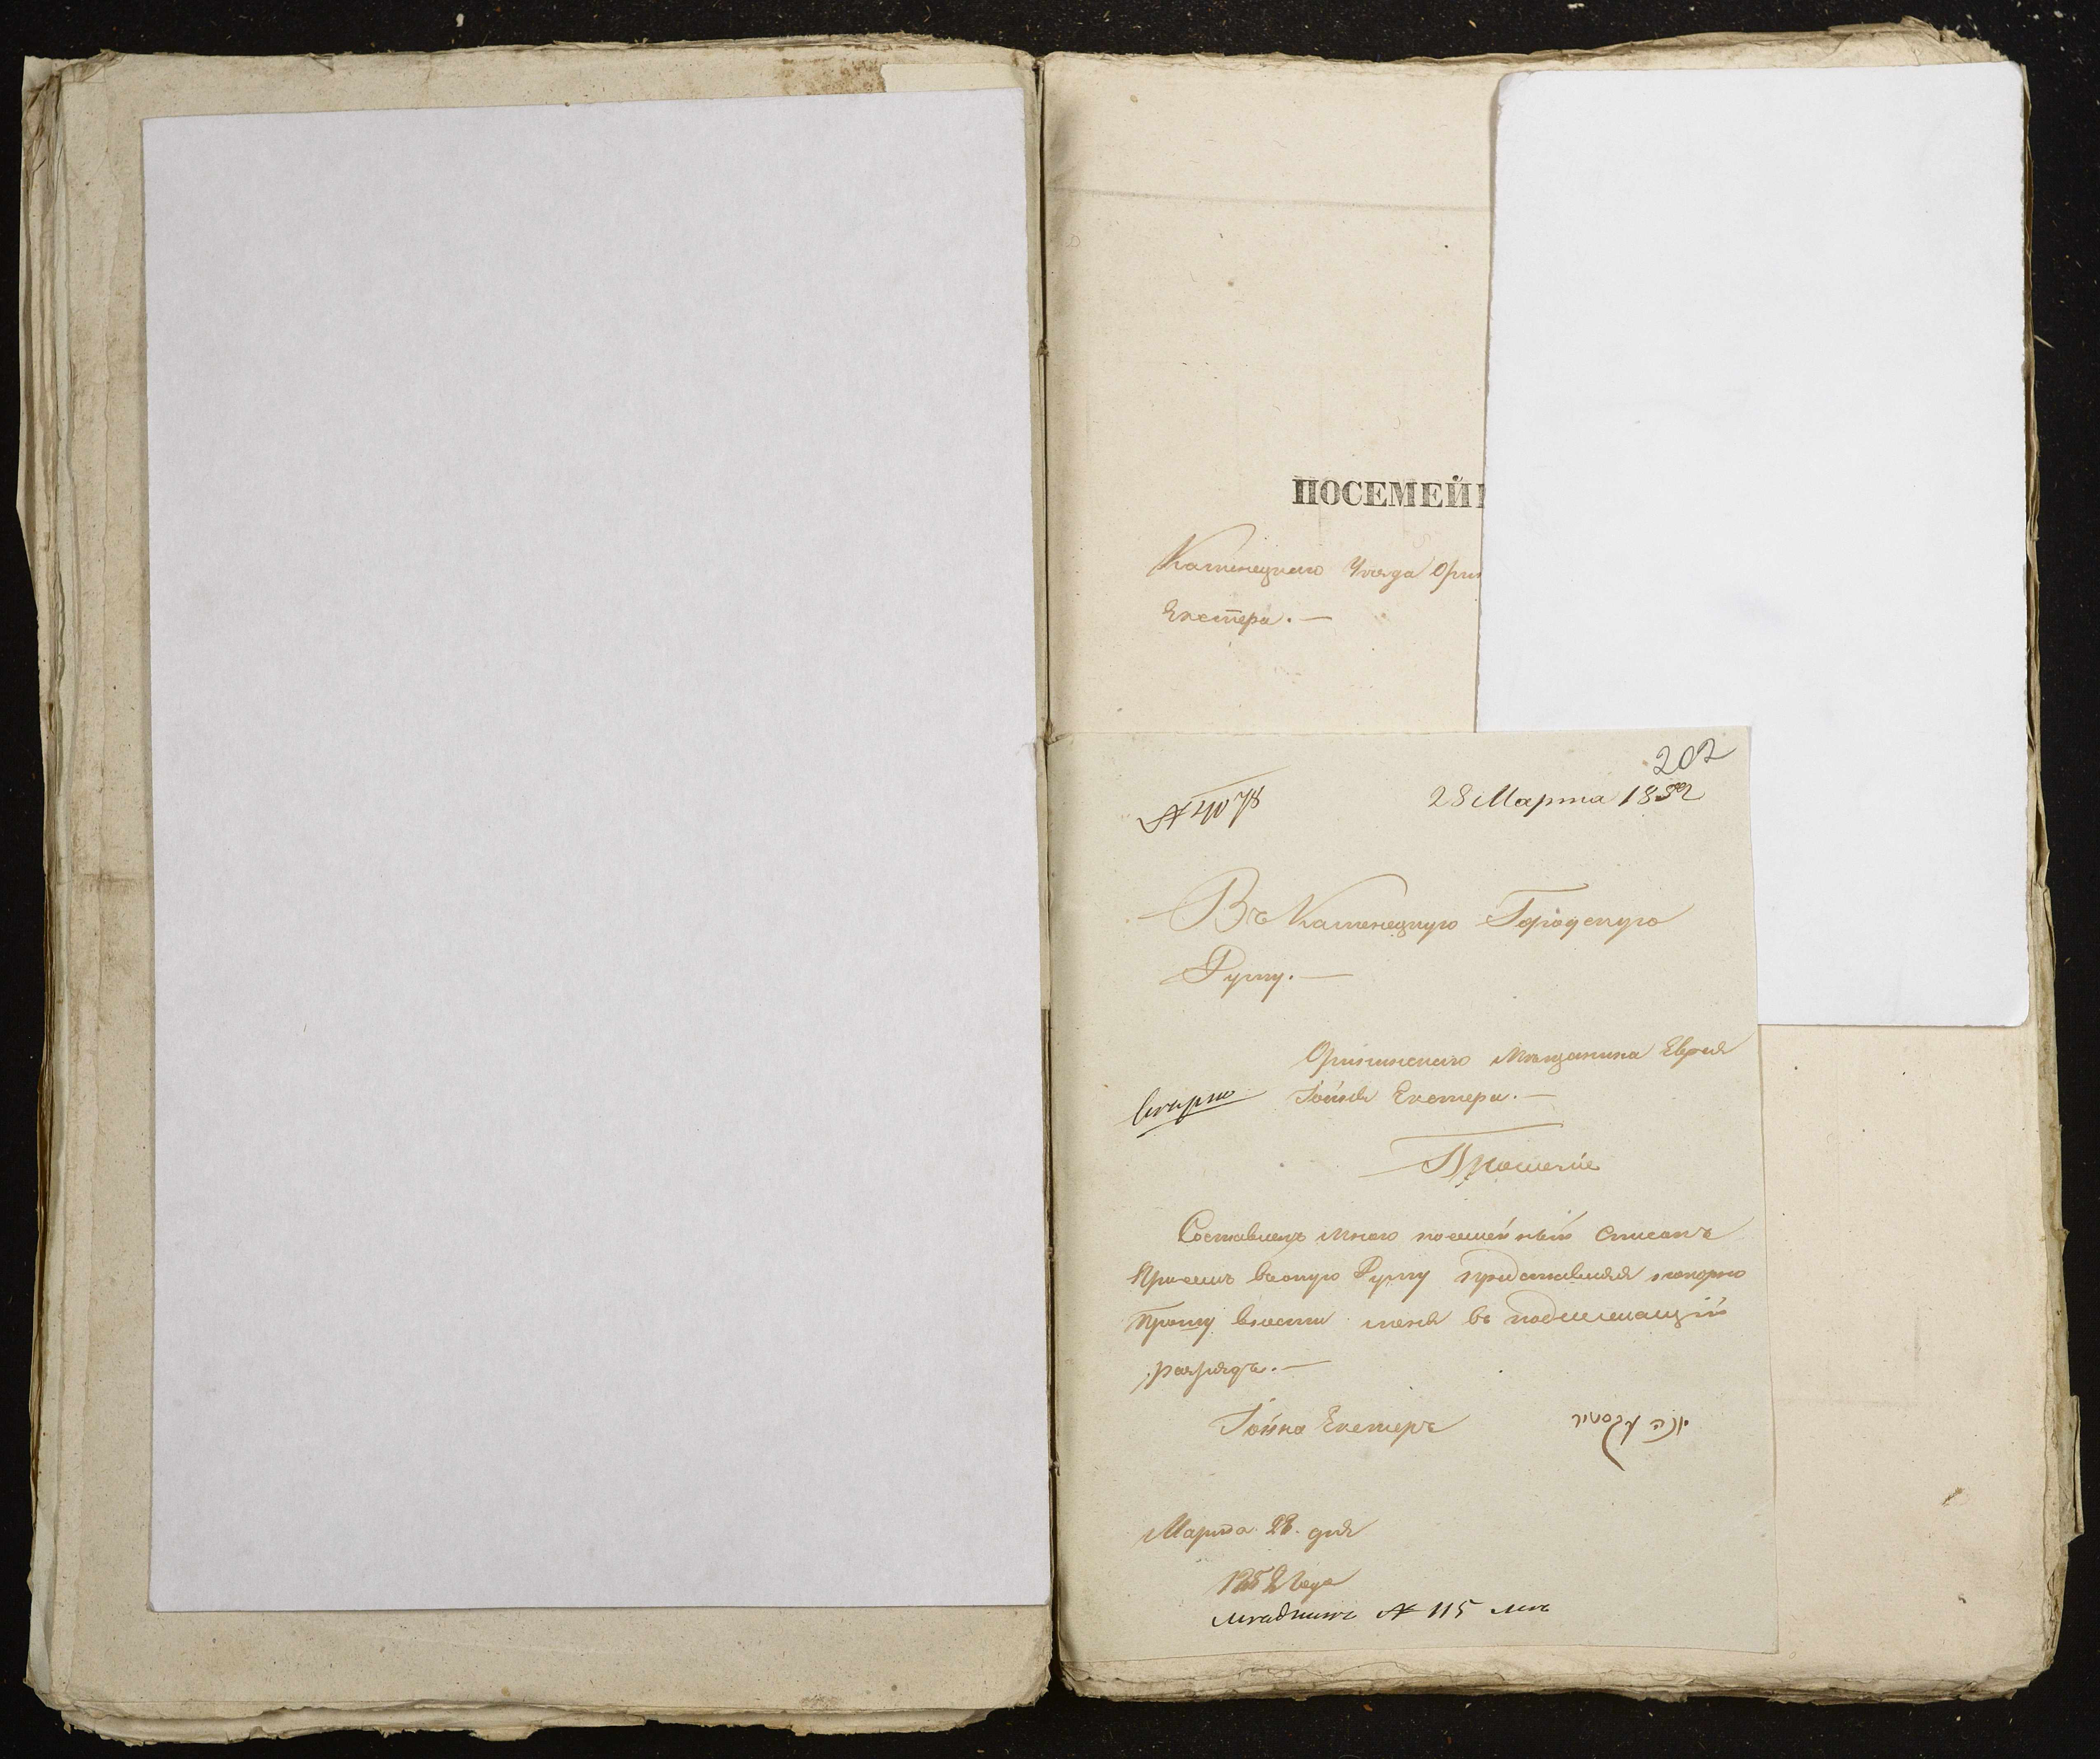 ПОСЕМЕЙН
Каменецкаго Уѣзда Орин
Екстера. —
202
№ 4078
28 Марта 1882
Въ Каменецкую Городскую
Думу. —
Орининскаго Мѣщанина Еврея
Іойны Екстера. —
Прошеніе
Составивъ мною посемейный списокъ
при семъ въ оную Думу представляя покорно
прошу внести меня въ подлежащій
разрядъ. —
Іойна Екстеръ
יונה עקסטיר
Марта 28. дня
1882 года
№ 115